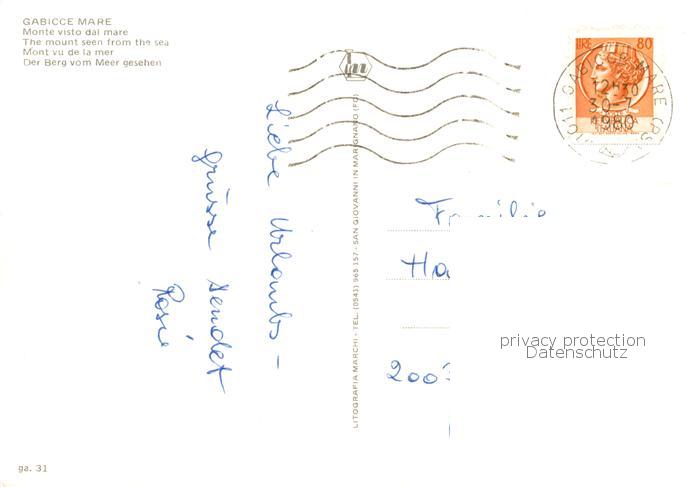 GABICCE MARE
Monte visto dal mare
The mount seen from the sea
Mont vu de la mer
Der Berg vom Meer gesehen
LIRE 80
61011 GABICCE MARE (PS)
12H30
30
1980
Liebe Urlaubs-
grüsse sendet
Rosie
LITOGRAFIA MARCHI - TEL. (0541) 965 157 - SAN GIOVANNI IN MARIGNANO (FO)
Familie
Ha
200
privacy protection
Datenschutz
ga. 31